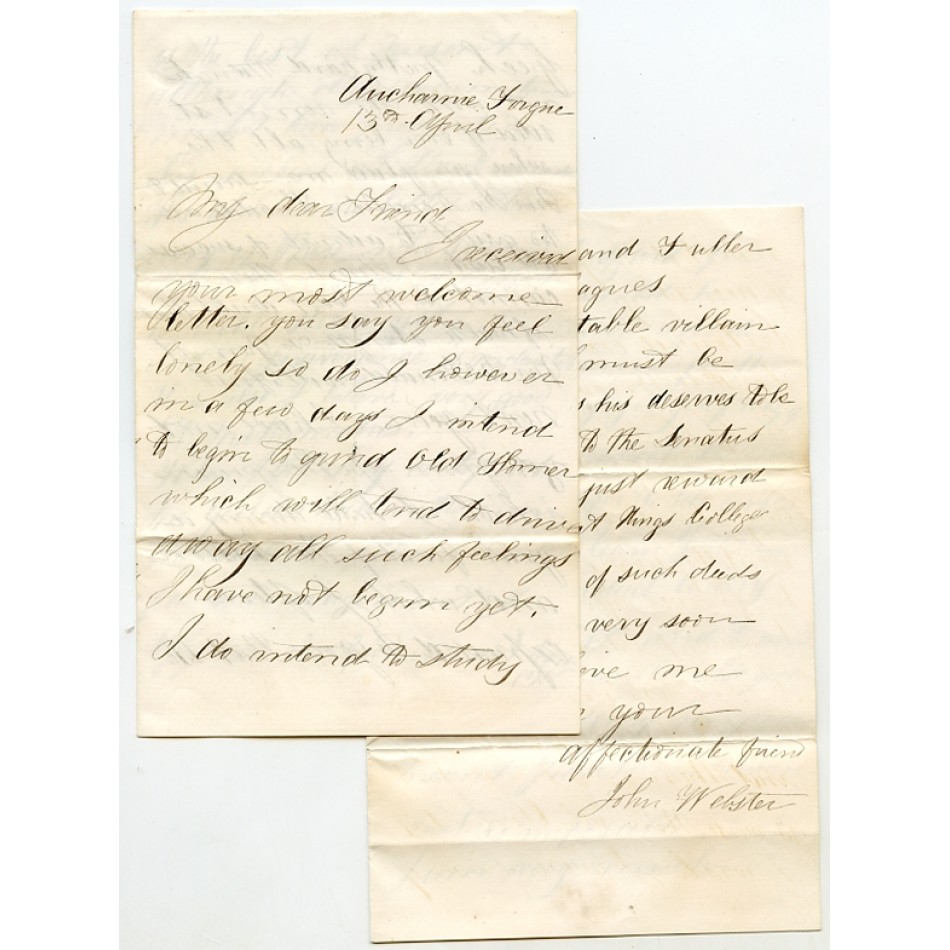 Aucharnie Forgue
13th April
My dear Friend
I received
your most welcome
letter. you say you feel
lonely so do I however
in a few days I intend
to begin to grind old Homer
which will tend to drive
away all such feelings
I have not begun yet.
I do intend to study
and Fuller
agues
table villain
must be
his deserves tole
to the Senatus
just reward
at Kings College
of such deeds
very soon
me
your
affectionate friend
John Webster